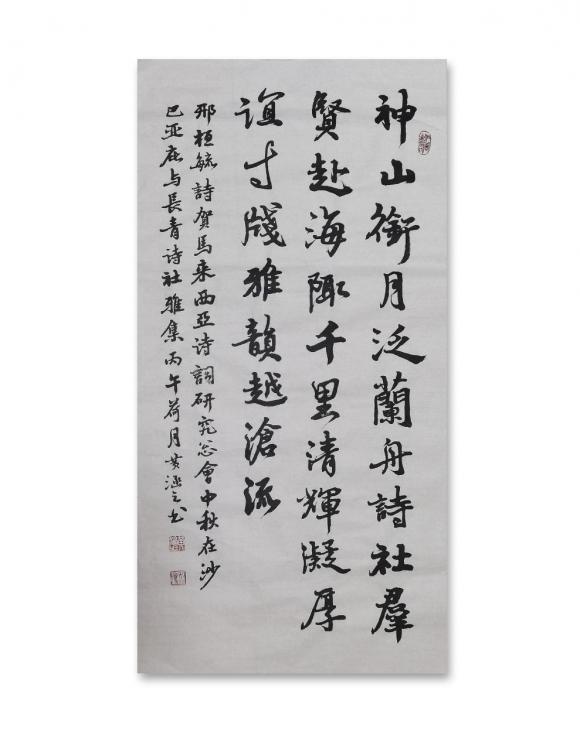 神山銜月泛蘭舟詩社羣
賢赴海陬千里清輝凝厚
誼寸牋雅韻越滄流
邢桓毓詩賀馬来西亞诗詞研究总會中秋在沙
巴亚庇与長青诗社雅集丙午荷月黄涵之书